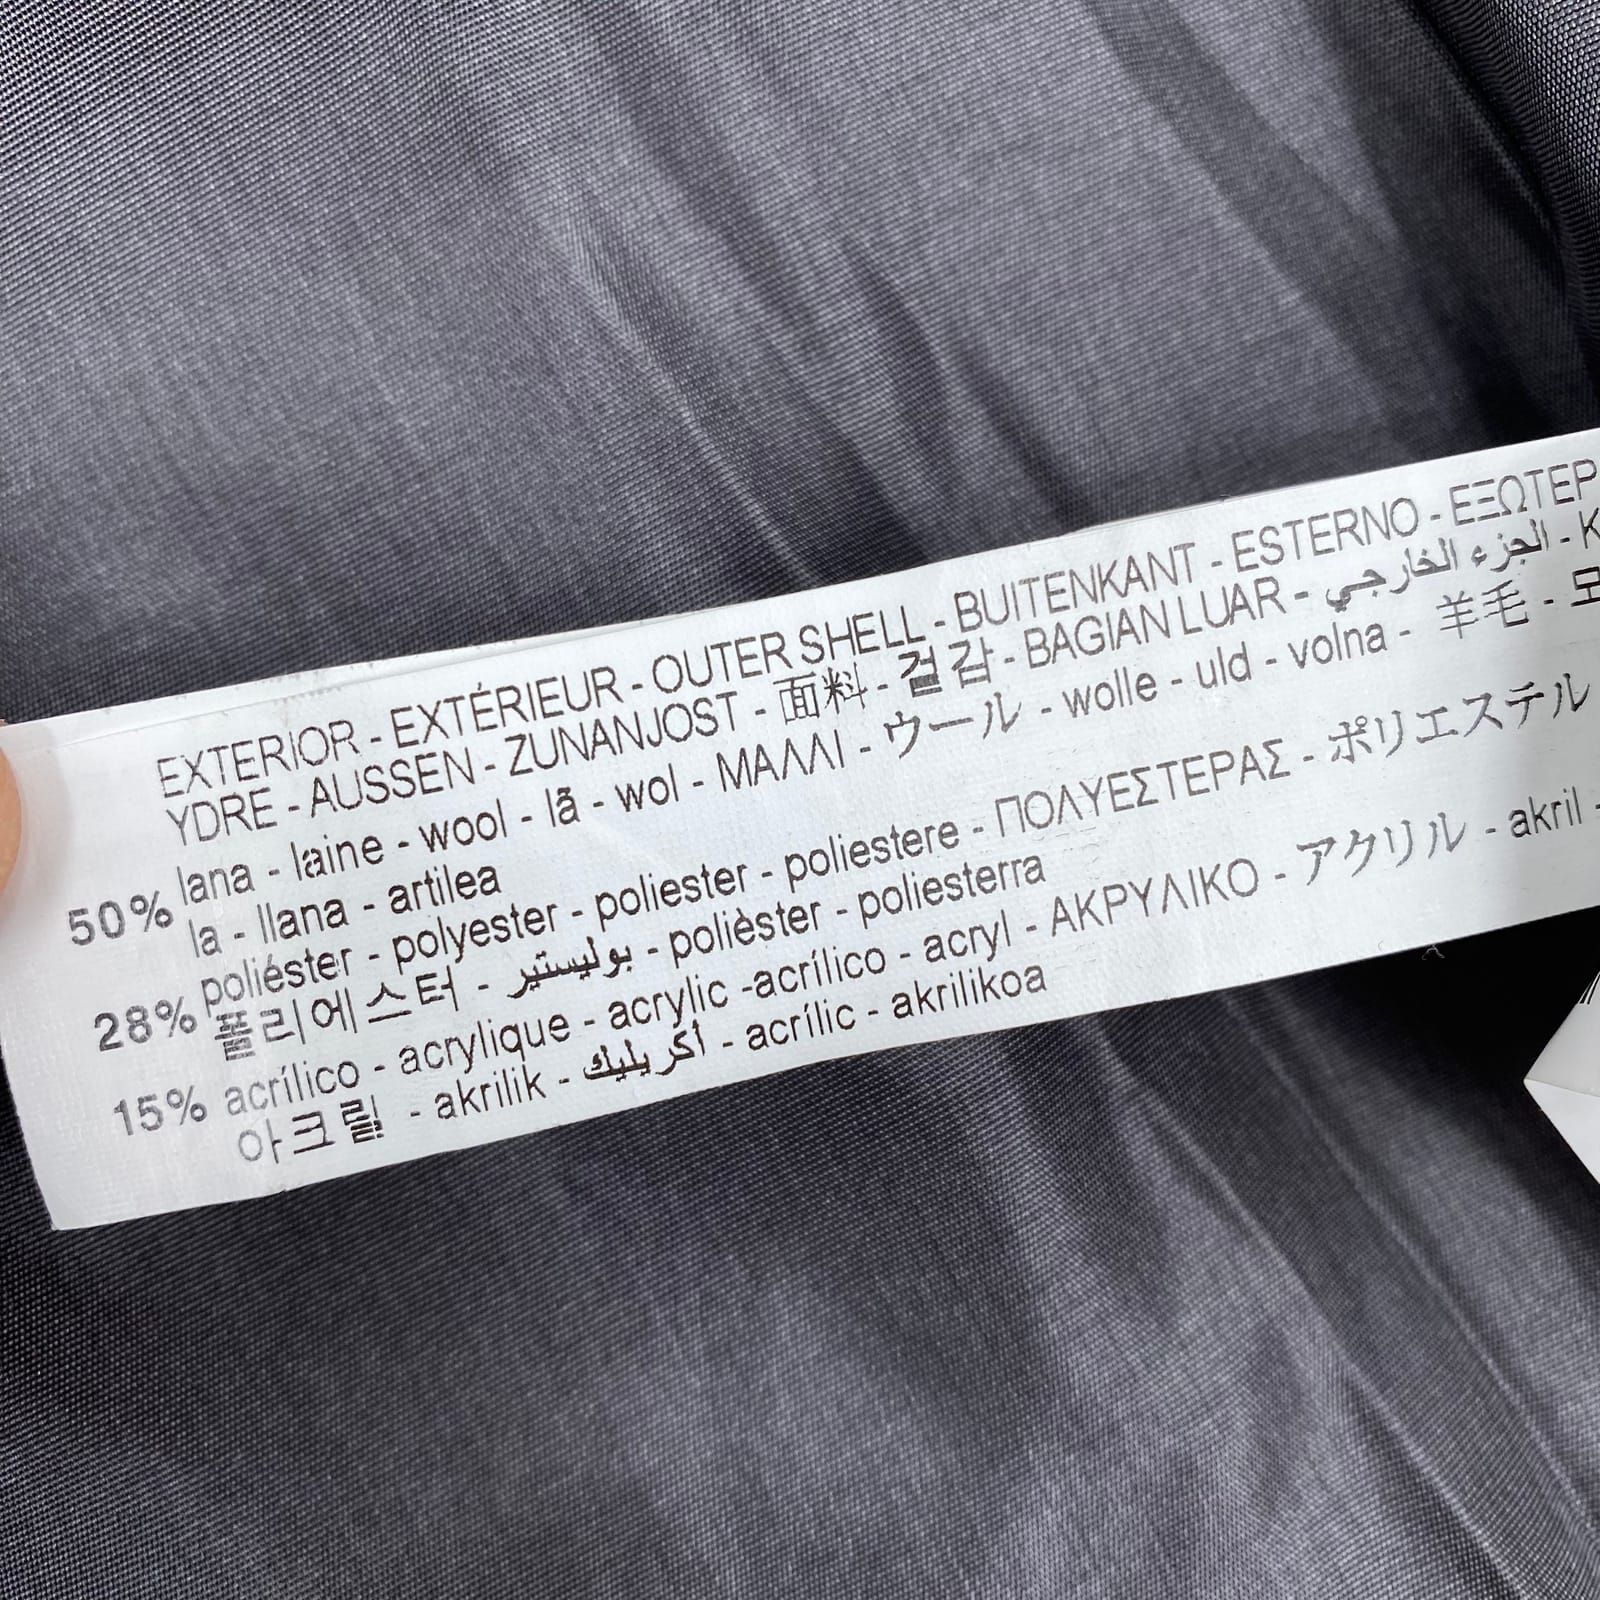 EXTERIOR - EXTÉRIEUR - OUTER SHELL - BUITENKANT - ESTERNO - ΕΞΩΤΕΡ
YDRE - AUSSEN - ZUNANJOST - 面料 - 겉감 - BAGIAN LUAR - الجزء الخارجي - K
50% lana - laine - wool - lã - wol - ΜΑΛΛΙ - ウール - wolle - uld - volna - 羊毛 - 모
la - llana - artilea
28% poliéster - polyester - poliester - poliestere - ΠΟΛΥΕΣΤΕΡΑΣ - ポリエステル
폴리에스터 - بوليستير - polièster - poliesterra
15% acrílico - acrylique - acrylic -acrílico - acryl - ΑΚΡΥΛΙΚΟ - アクリル - akril -
아크릴 - akrilik - أكريليك - acrílic - akrilikoa